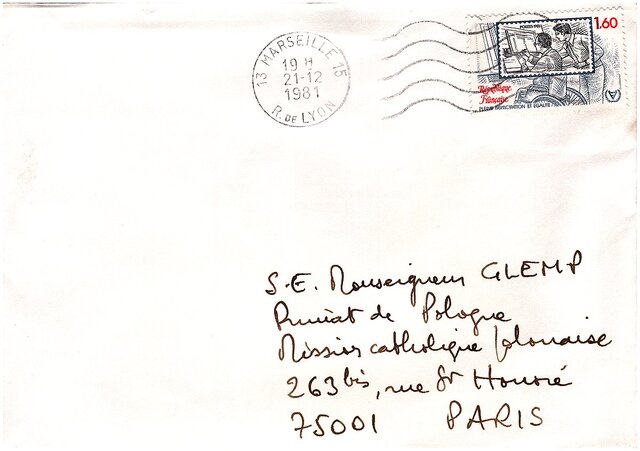 13 MARSEILLE 15
19 H
21-12
1981
R. DE LYON
POSTES 1981
1.60
République
Française
PLEINE PARTICIPATION ET EGALITE
S.E. Monseigneur GLEMP
Primat de Pologne
Mission catholique polonaise
263 bis, rue St Honoré
75001 PARIS